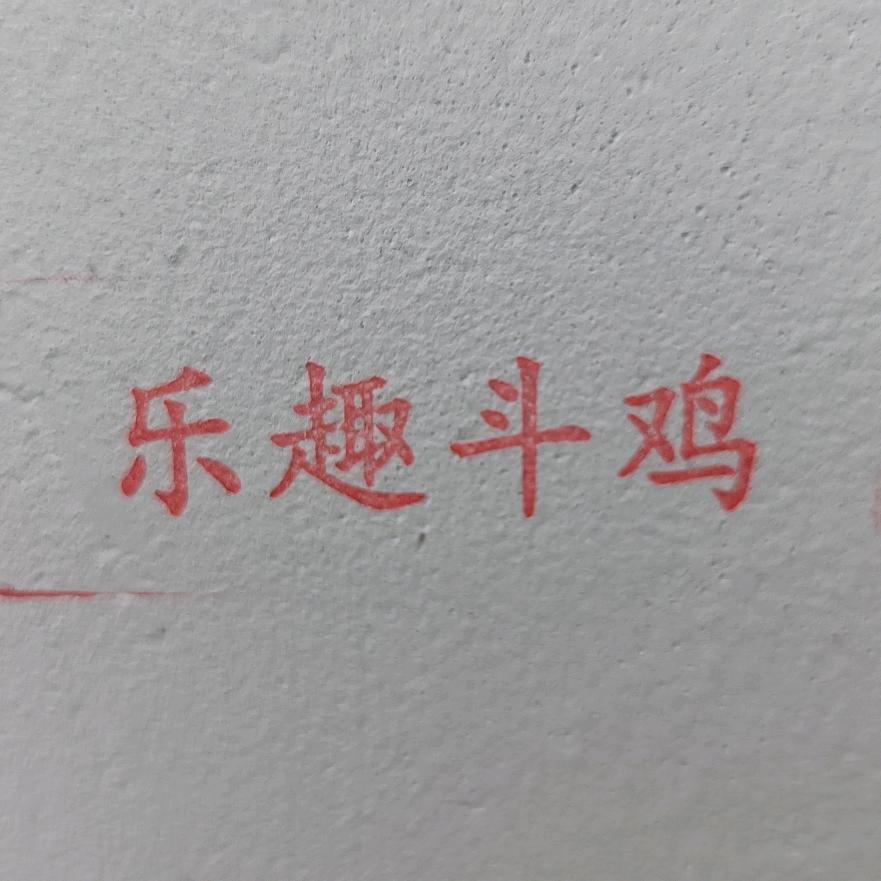 乐趣斗鸡